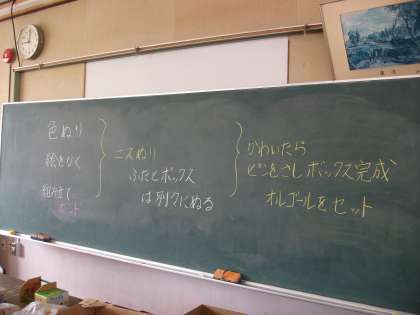 色ぬり
絵をかく
組み立て
ボンド
ニスぬり
ふたとボックス
は別々にぬる
かわいたら
ピンをさしボックス完成
オルゴールをセット